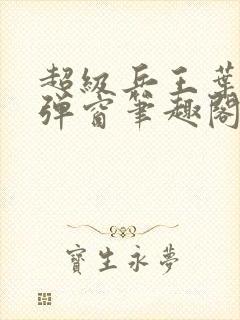 超級兵王葉
彈窗筆趣閣
寶生永夢